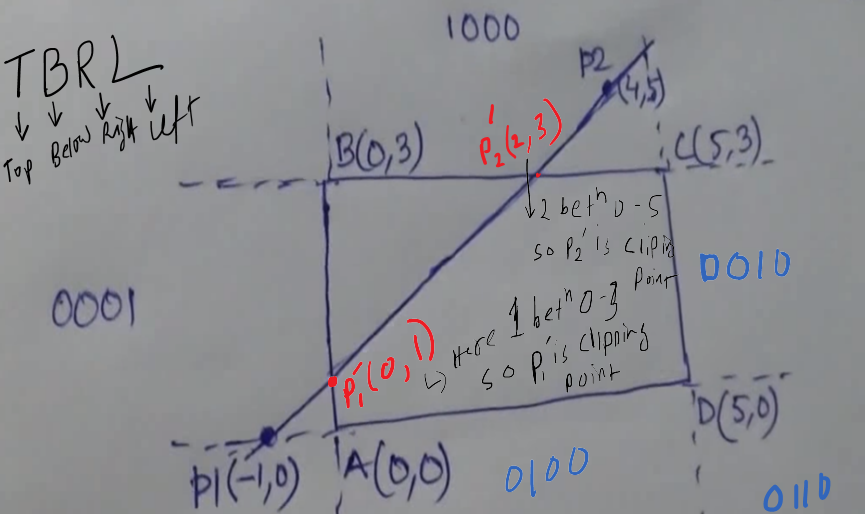 1000
TBRL
Top Below Right Left
P2
(4,5)
P2'(2,3)
B(0,3)
C(5,3)
2 betn 0-5
so P2' is cliping
Point
0010
0001
Here 1 betn 0-3
so P1' is clipping
point
P1'(0,1)
P1(-1,0)
A(0,0)
D(5,0)
0100
0110